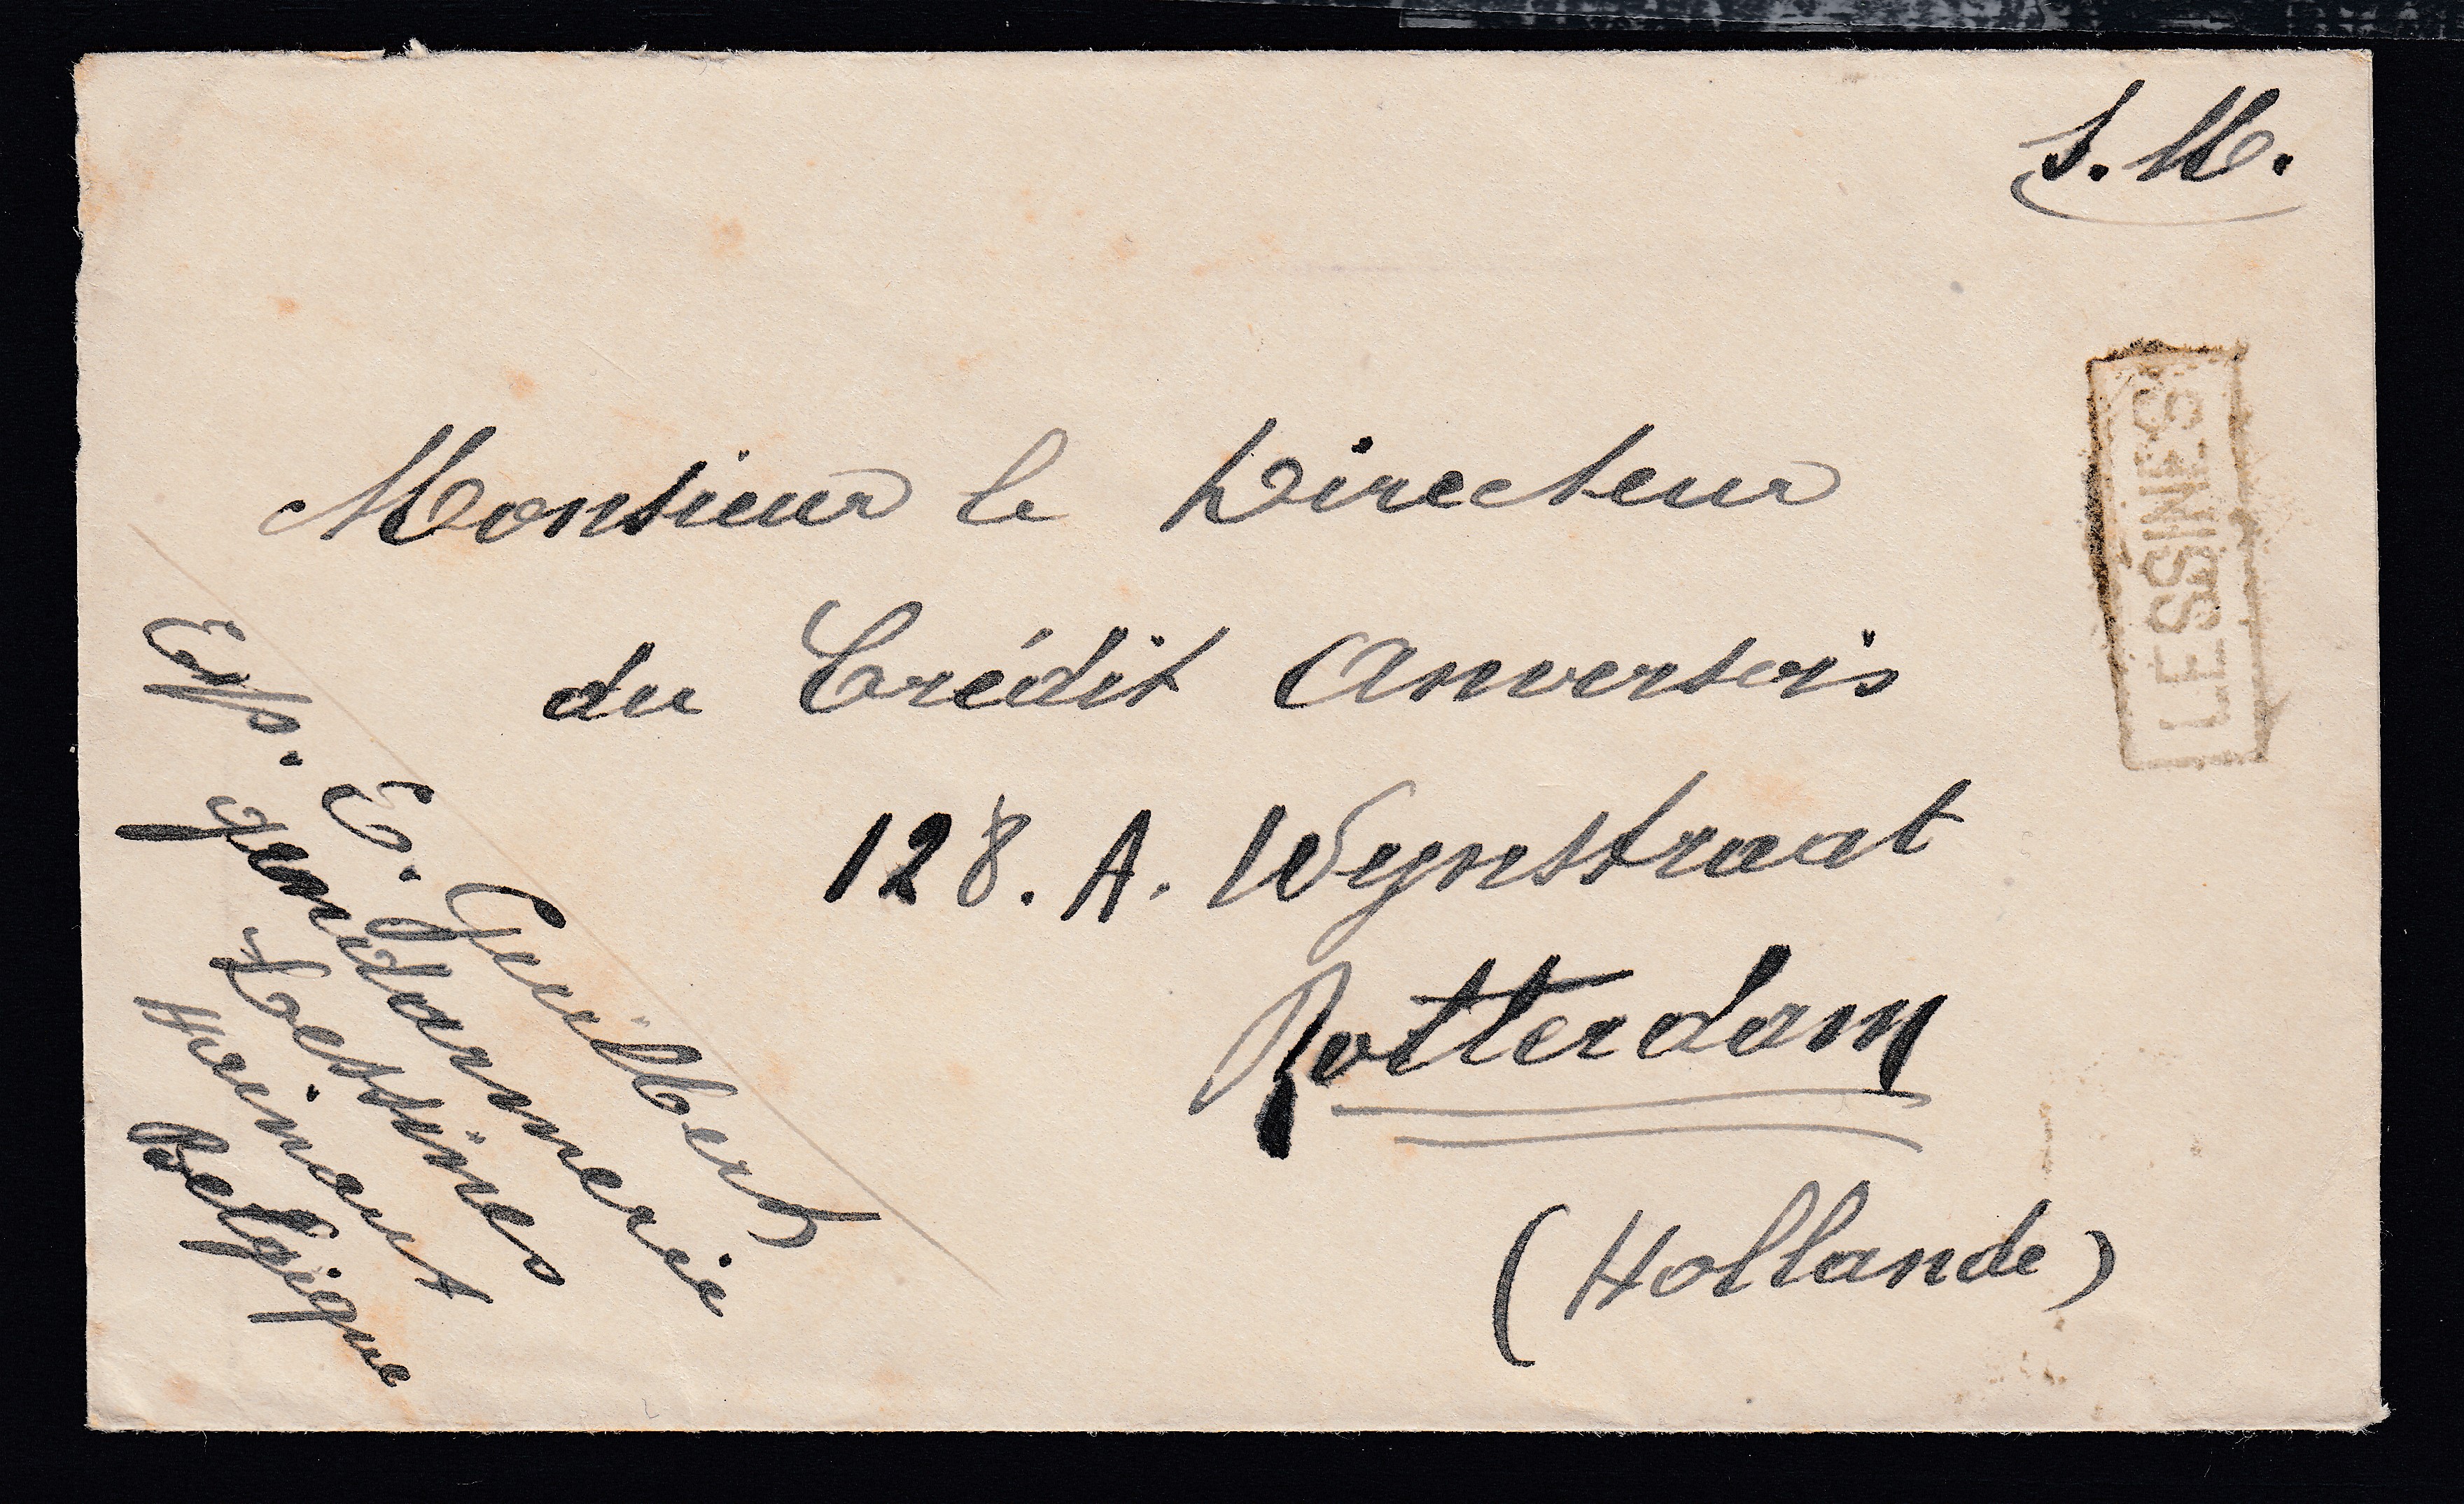 S.M.
LESSINES
Monsieur le Directeur
du Crédit Anversois
128. A. Wynstraat
Rotterdam
(Hollande)
Exp. E.
gendarmerie
Lessines
Hainaut
Belgique